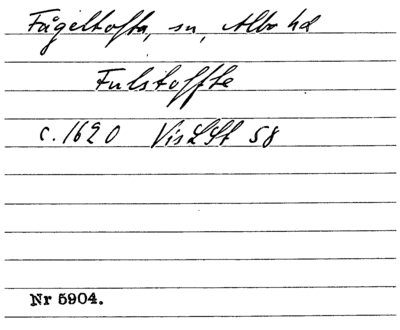 Fågeltofta, sn, Albo hd
Fulstoffte
c. 1620 VisLSt 58
Nr 5904.